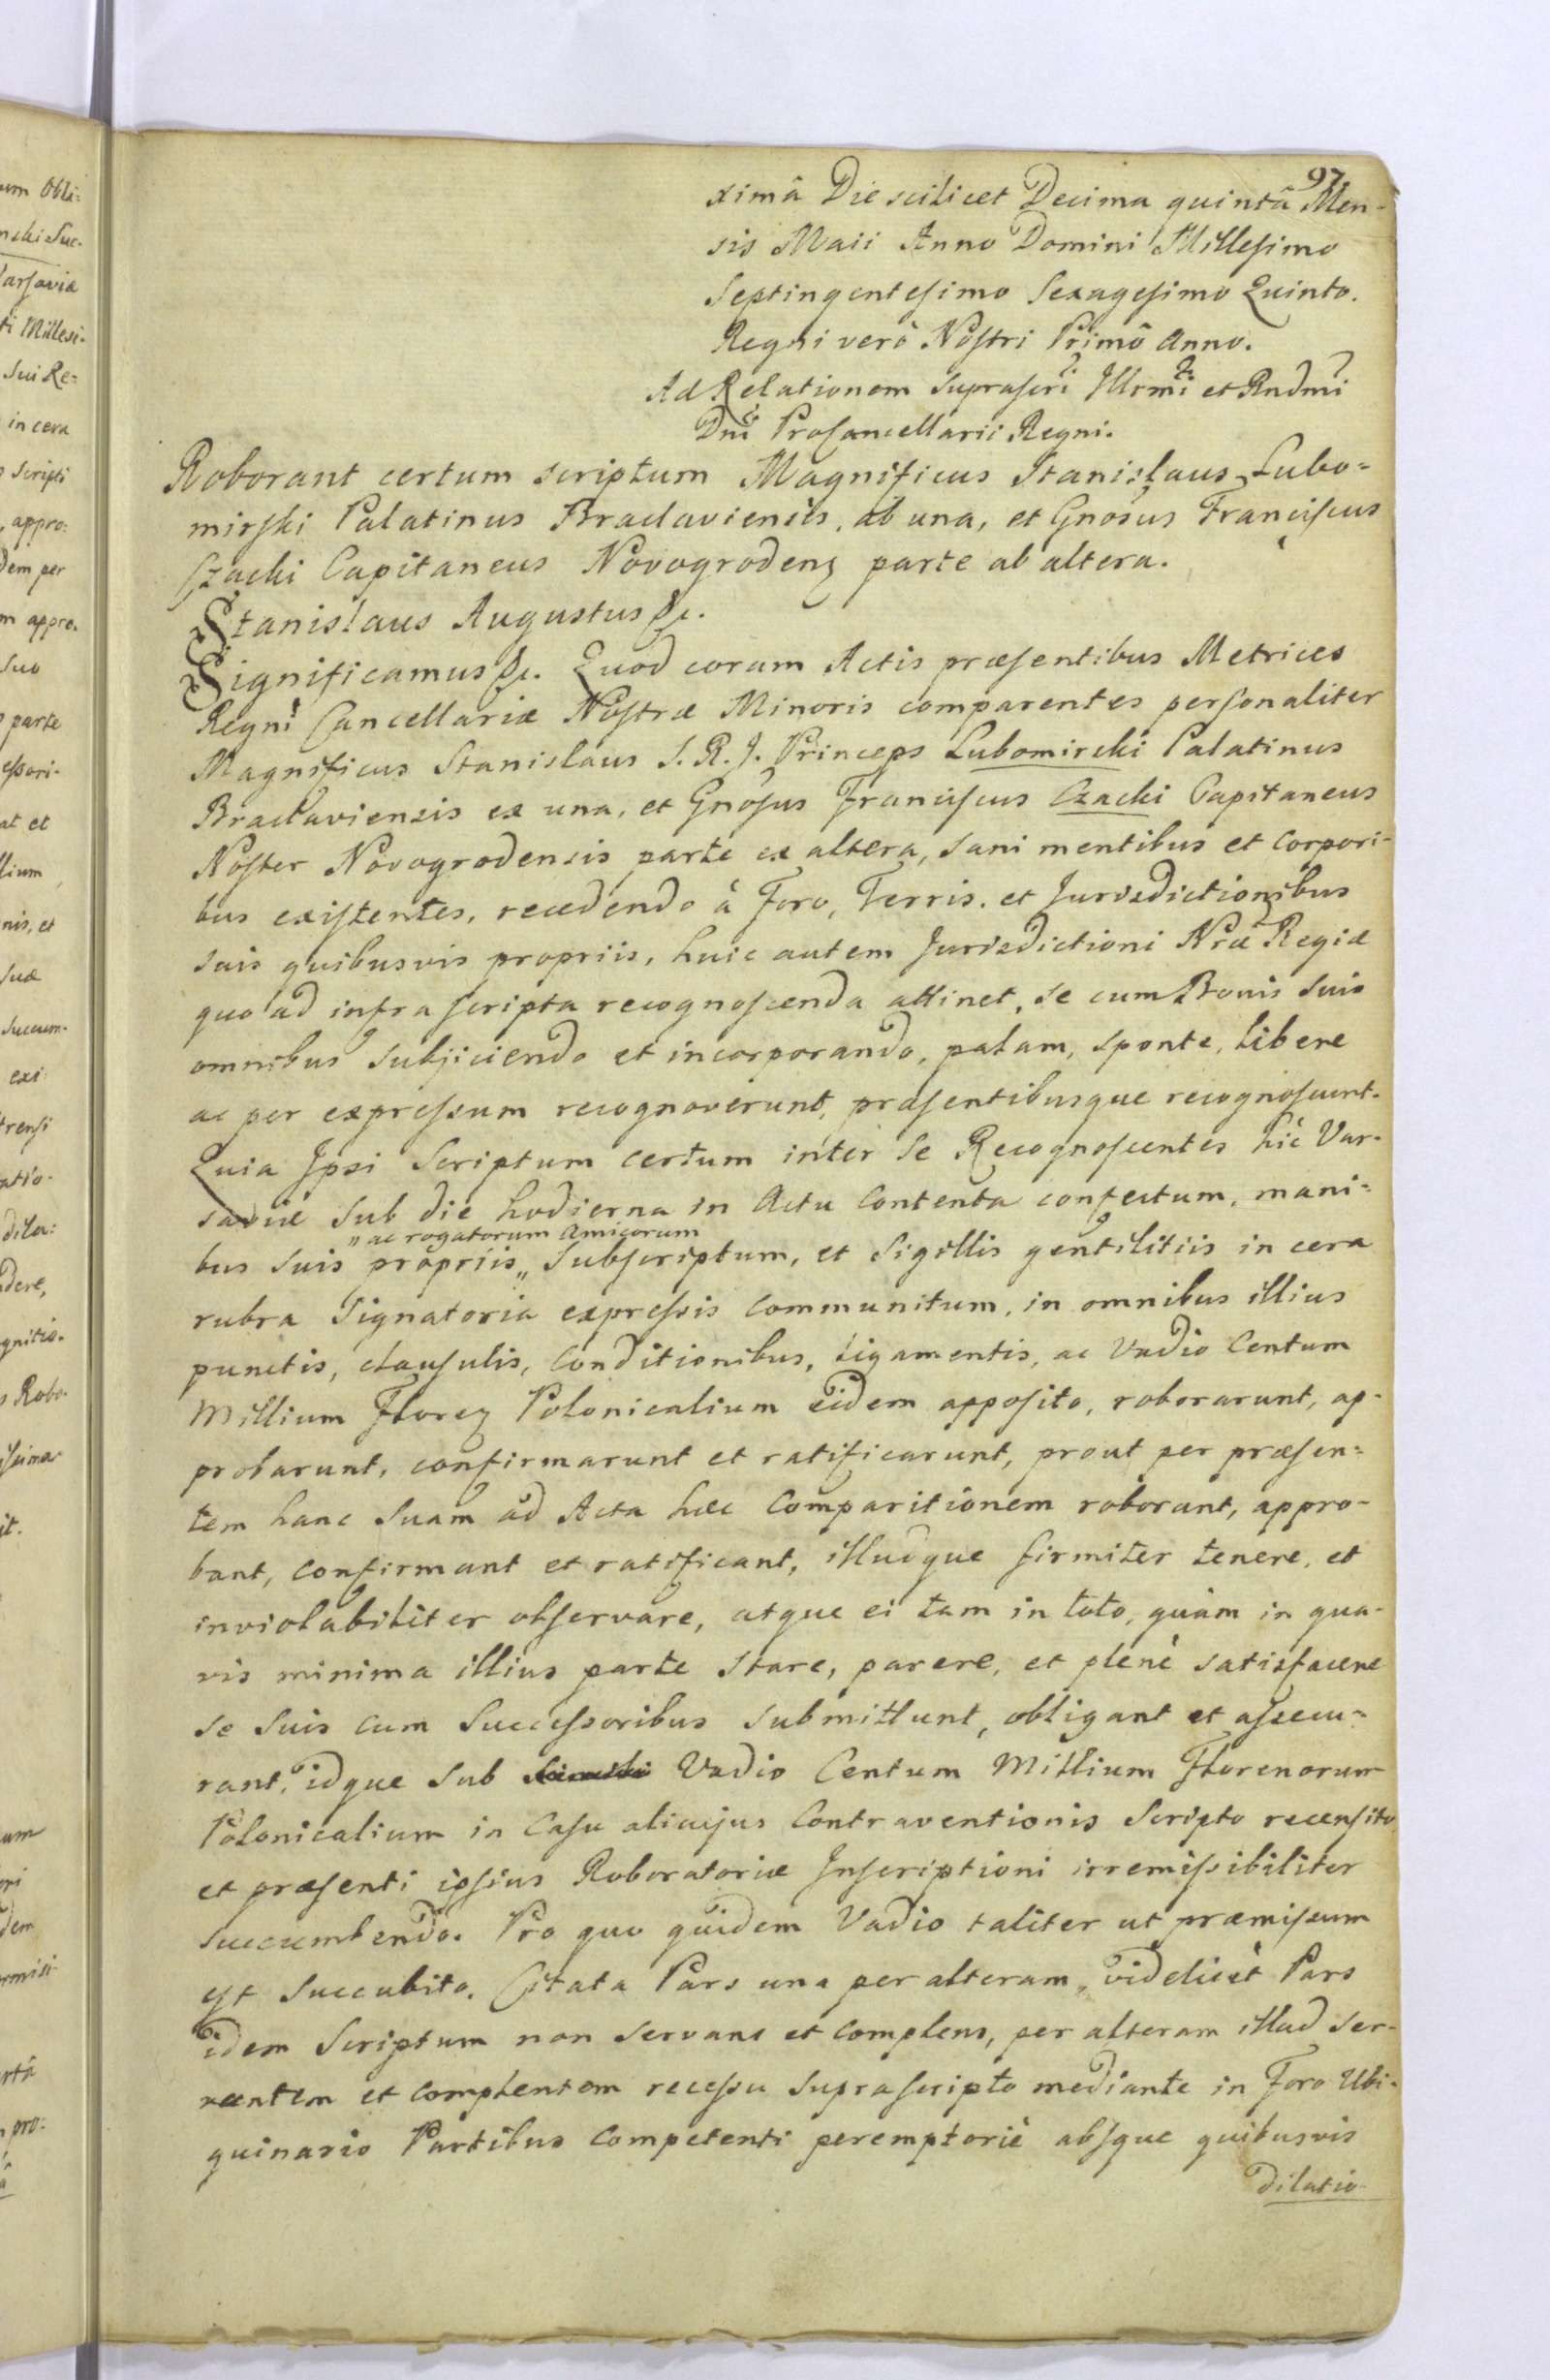 97
ximâ Die scilicet Decima quintâ Men-
sis Maii Anno Domini Millesimo
Septingentesimo Sexagesimo Quinto.
Regni verò Nostri Primô Anno.
Ad Relationem suprascri Illrmi et Rndmi
Dni Procancellarii Regni.
Roborant certum scriptum Magnificus Stanislaus Lubo=
mirski Palatinus Braclaviensis, ab una, et Gnosus Franciscus
Czacki Capitaneus Novogrodens parte ab altera.
Stanislaus Augustus &c.
Significamus &c. Quod coram Actis præsentibus Metrices
Regni Cancellariæ Nostræ Minoris comparentes personaliter
Magnificus Stanislaus S. R. J. Princeps Lubomircki Palatinus
Braclaviensis ex una, et Gnosus Franciscus Czacki Capitaneus
Noster Novogrodensis parte ex altera, sani mentibus et corpori-
bus existentes, recedendo à Foro, Terris, et Jurisdictionibus
suis quibusvis propriis, huic autem Jurisdictioni Nræ Regiæ
quo ad infra scripta recognoscenda attinet, se cum Bonis suis
omnibus subjiciendo et incorporando, palam, sponte, libere
ac per expressum recognoverunt, præsentibusque recognoscunt.
Quia Ipsi Scriptum certum inter se Recognoscentes hic Var-
saviæ sub die hodierna in Actu contenta confectum, mani=
„ ac rogatorum Amicorum
bus suis propriis „ subscriptum, et Sigillis gentilitiis in cera
rubra Signatoria expressis communitum, in omnibus illius
punctis, clausulis, Conditionibus, ligamentis, ac Vadio Centum
Millium Floren Polonicalium eidem apposito, roborarunt, ap-
probarunt, confirmarunt et ratificarunt, prout per præsen=
tem hanc suam ad Acta hæc Comparitionem roborant, appro-
bant, confirmant et ratificant, illudque firmiter tenere, et
inviolabiliter observare, atque ei tam in toto, quàm in qua-
vis minima illius parte stare, parere, et plenè satisfacere
se suis cum Successoribus submittunt, obligant et assecu=
rant, idque sub Vadio Centum Millium Florenorum
Polonicalium in Casu alicujus Contraventionis Scripto recensito
et præsenti ipsius Roboratoriæ Inscriptioni irremissibiliter
succumbendo. Pro quo quidem Vadio taliter ut præmissum
est succubito. Citata Pars una per alteram, videlicèt Pars
idem Scriptum non servans et complens, per alteram illud ser-
vantem et complentem recessu suprascripto mediante in Foro Ubi-
quinario Partibus Competenti peremptoriè absque quibusvis
dilatio-